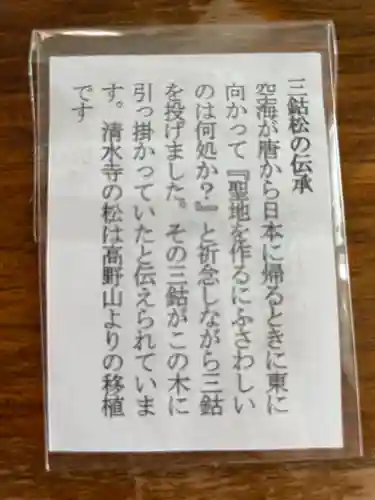 三鈷松の伝承
空海が唐から日本に帰るときに東に
向かって『聖地を作るにふさわしい
のは何処か？』と祈念しながら三鈷
を投げました。その三鈷がこの木に
引っ掛かっていたと伝えられていま
す。清水寺の松は高野山よりの移植
です